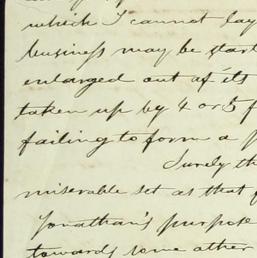 which I cannot lay
business may be start
enlarged out of its
taken up by 4 or 5 f
failing to form a p
Surely th
miserable set as that
Jonathan's purpose
towards some other